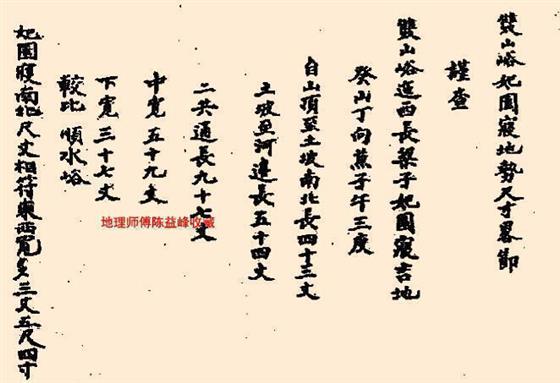 雙山峪妃園寢地勢尺寸畧節
謹查
雙山峪迤西長梁子妃園寢吉地
癸山丁向兼子午三度
自山頂至土坡南北長四十三丈
土坡至河邊長五十四丈
二共通長九十七丈
中寬五十九丈
下寬三十七丈
較比 順水峪
妃園寢南北尺丈相符東西寬多三丈五尺四寸
地理师傅陈益峰收藏